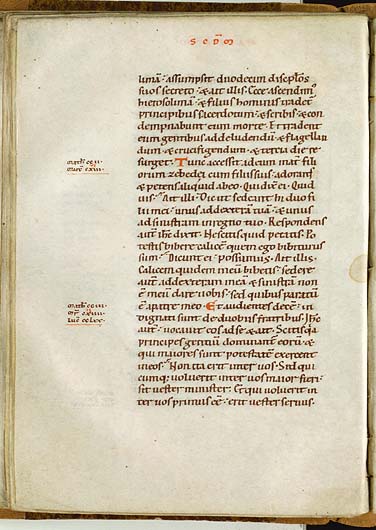 SCDM
limā. assumpsit duodecim discip̄los
suos secreto. & ait illis. Ecce ascendim᷒
hierosolimā. & filius hominis tradet̄
principibus sacerdotum. & scribis. & con
dempnabunt eum morte. Et tradent
eum gentibus ad deludendū. & flagellan
dum & crucifigendum. & tercia die re
surget. Tunc accessit ad eum mat̄ fili
orum zebedei cum filiis suis. adorans
& petens aliquid ab eo. Qui dix̄ ei. Quid
uis. Ait illi. Dic ut sedeant hi duo fi
lii mei. unus ad dexterā tuā. & unus
ad sinistram in regno tuo. Respondens
aut̄ ihc̄ dixit. Nescitis quid petatis. Po
testis bibere calicē quem ego bibiturus
sum. Dicunt ei. Possumus. Ait illis.
Calicem quidem meū bibetis. sedere
aut̄ ad dexteram meā & sinistrā non
ē meū dare uobis. sed quibus paratū
ē a patre meo. Et audientes decē. in
dignati sunt de duobus fratribus. Ihc̄
aut̄ uocauit eos ad se & ait. Scitis q̄a
principes gentiū dominant̄ eorū. &
qui maiores sunt potestatē exercent
in eos. Non ita erit inter uos. Sed qui
cumq; uoluerit inter uos maior fieri.
sit uester minister. Et qui uoluerit in
ter uos primus eē. erit uester seruus.